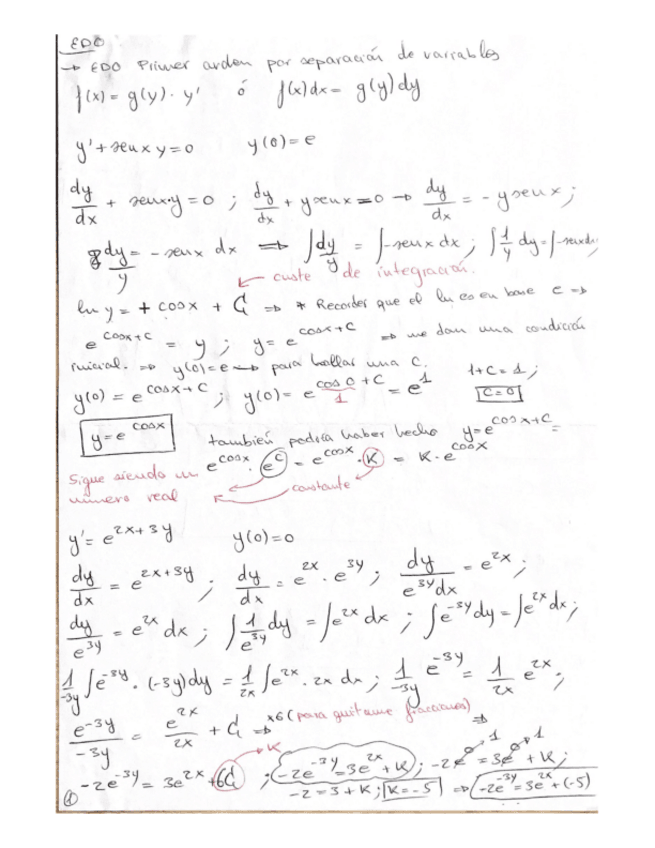 EDO
→ EDO Primer orden por separación de variables
f(x) = g(y) · y' ó f(x)dx = g(y)dy
y' + senx y = 0 y(0) = e
dy/dx + senx·y = 0 ; dy/dx + y senx = 0 → dy/dx = - y senx ;
dy/y = - senx dx ⇒ ∫dy/y = ∫-senx dx ; ∫1/y dy = ∫-senxdx;
← custe de integración.
ln y = + cosx + C ⇒ * Recordar que el ln es en base e ⇒
e^(cosx+c) = y ; y = e^(cosx+c) ⇒ me dan una condición
inicial. ⇒ y(0) = e → para hallar una C.
y(0) = e^(cosx+c) ; y(0) = e^(cos0+c) = e^1 1+C = 1 ;
1 C=0
y = e^cosx también podría haber hecho y = e^(cosx+c) =
e^cosx · e^c = e^cosx · K = K · e^cosx
Sigue siendo un
número real constante
y' = e^(2x+3y) y(0) = 0
dy/dx = e^(2x+3y) ; dy/dx = e^2x · e^3y ; dy/(e^3y dx) = e^2x ;
dy/e^3y = e^2x dx ; ∫1/e^3y dy = ∫e^2x dx ; ∫e^-3y dy = ∫e^2x dx ;
1/-3y ∫e^-3y · (-3y)dy = 1/2x ∫e^2x · 2x dx ; 1/-3y e^-3y = 1/2x e^2x ;
e^-3y/-3y = e^2x/2x + C ⇒ x6 (para quitarme fracciones) ⇒
K
-2e^-3y = 3e^2x + 6C ; -2e^-3y = 3e^2x + K ; -2e^0 = 3e^0 + K ;
1 1
① -2 = 3 + K ; K = -5 ⇒ -2e^-3y = 3e^2x + (-5)